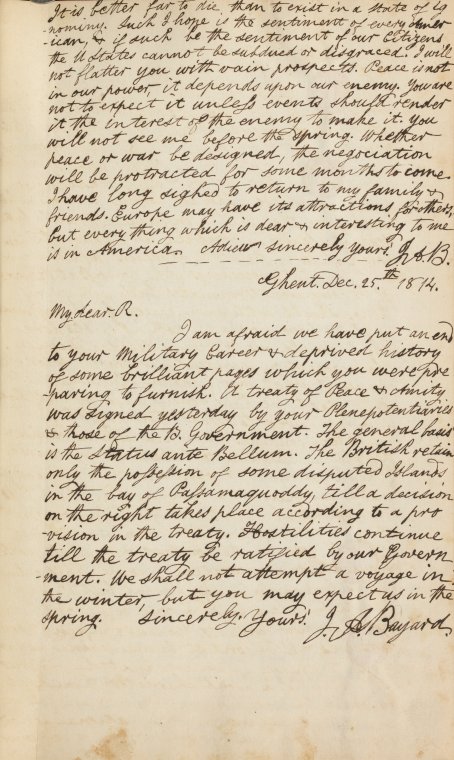 It is better far to die, than to exist in a state of ig
nominy. Such I hope is the sentiment of every Amer
-ican, & if such be the sentiment of our Citizens
the U States cannot be subdued or disgraced. I will
not flatter you with vain prospects. Peace is not
in our power, it depends upon our enemy. You are
not to expect it unless events should render
it the interest of the enemy to make it. You
will not see me before the spring. Whether
peace or war be designed, the negociation
will be protracted for some months to come.
I have long sighed to return to my family &
friends. Europe may have its attractions for others,
but every thing which is dear & interesting to me
is in America. Adieu sincerely yours. J. A. B.
Ghent. Dec. 25.th 1814.
My dear R.
I am afraid we have put an end
to your Military Career & deprived history
of some brilliant pages which you were pre
-paring to furnish. A treaty of Peace & Amity
was signed yesterday by your Plenepotentiaries
& those of the B. Government. The general basis
is the Status ante Bellum. The British retain
only the possession of some disputed Islands
in the bay of Passamaquoddy, till a decision
on the right takes place according to a pro
vision in the treaty. Hostilities continue
till the treaty be ratified by our Govern
-ment. We shall not attempt a voyage in
the winter but you may expect us in the
spring. Sincerely. Yours. J. A. Bayard.